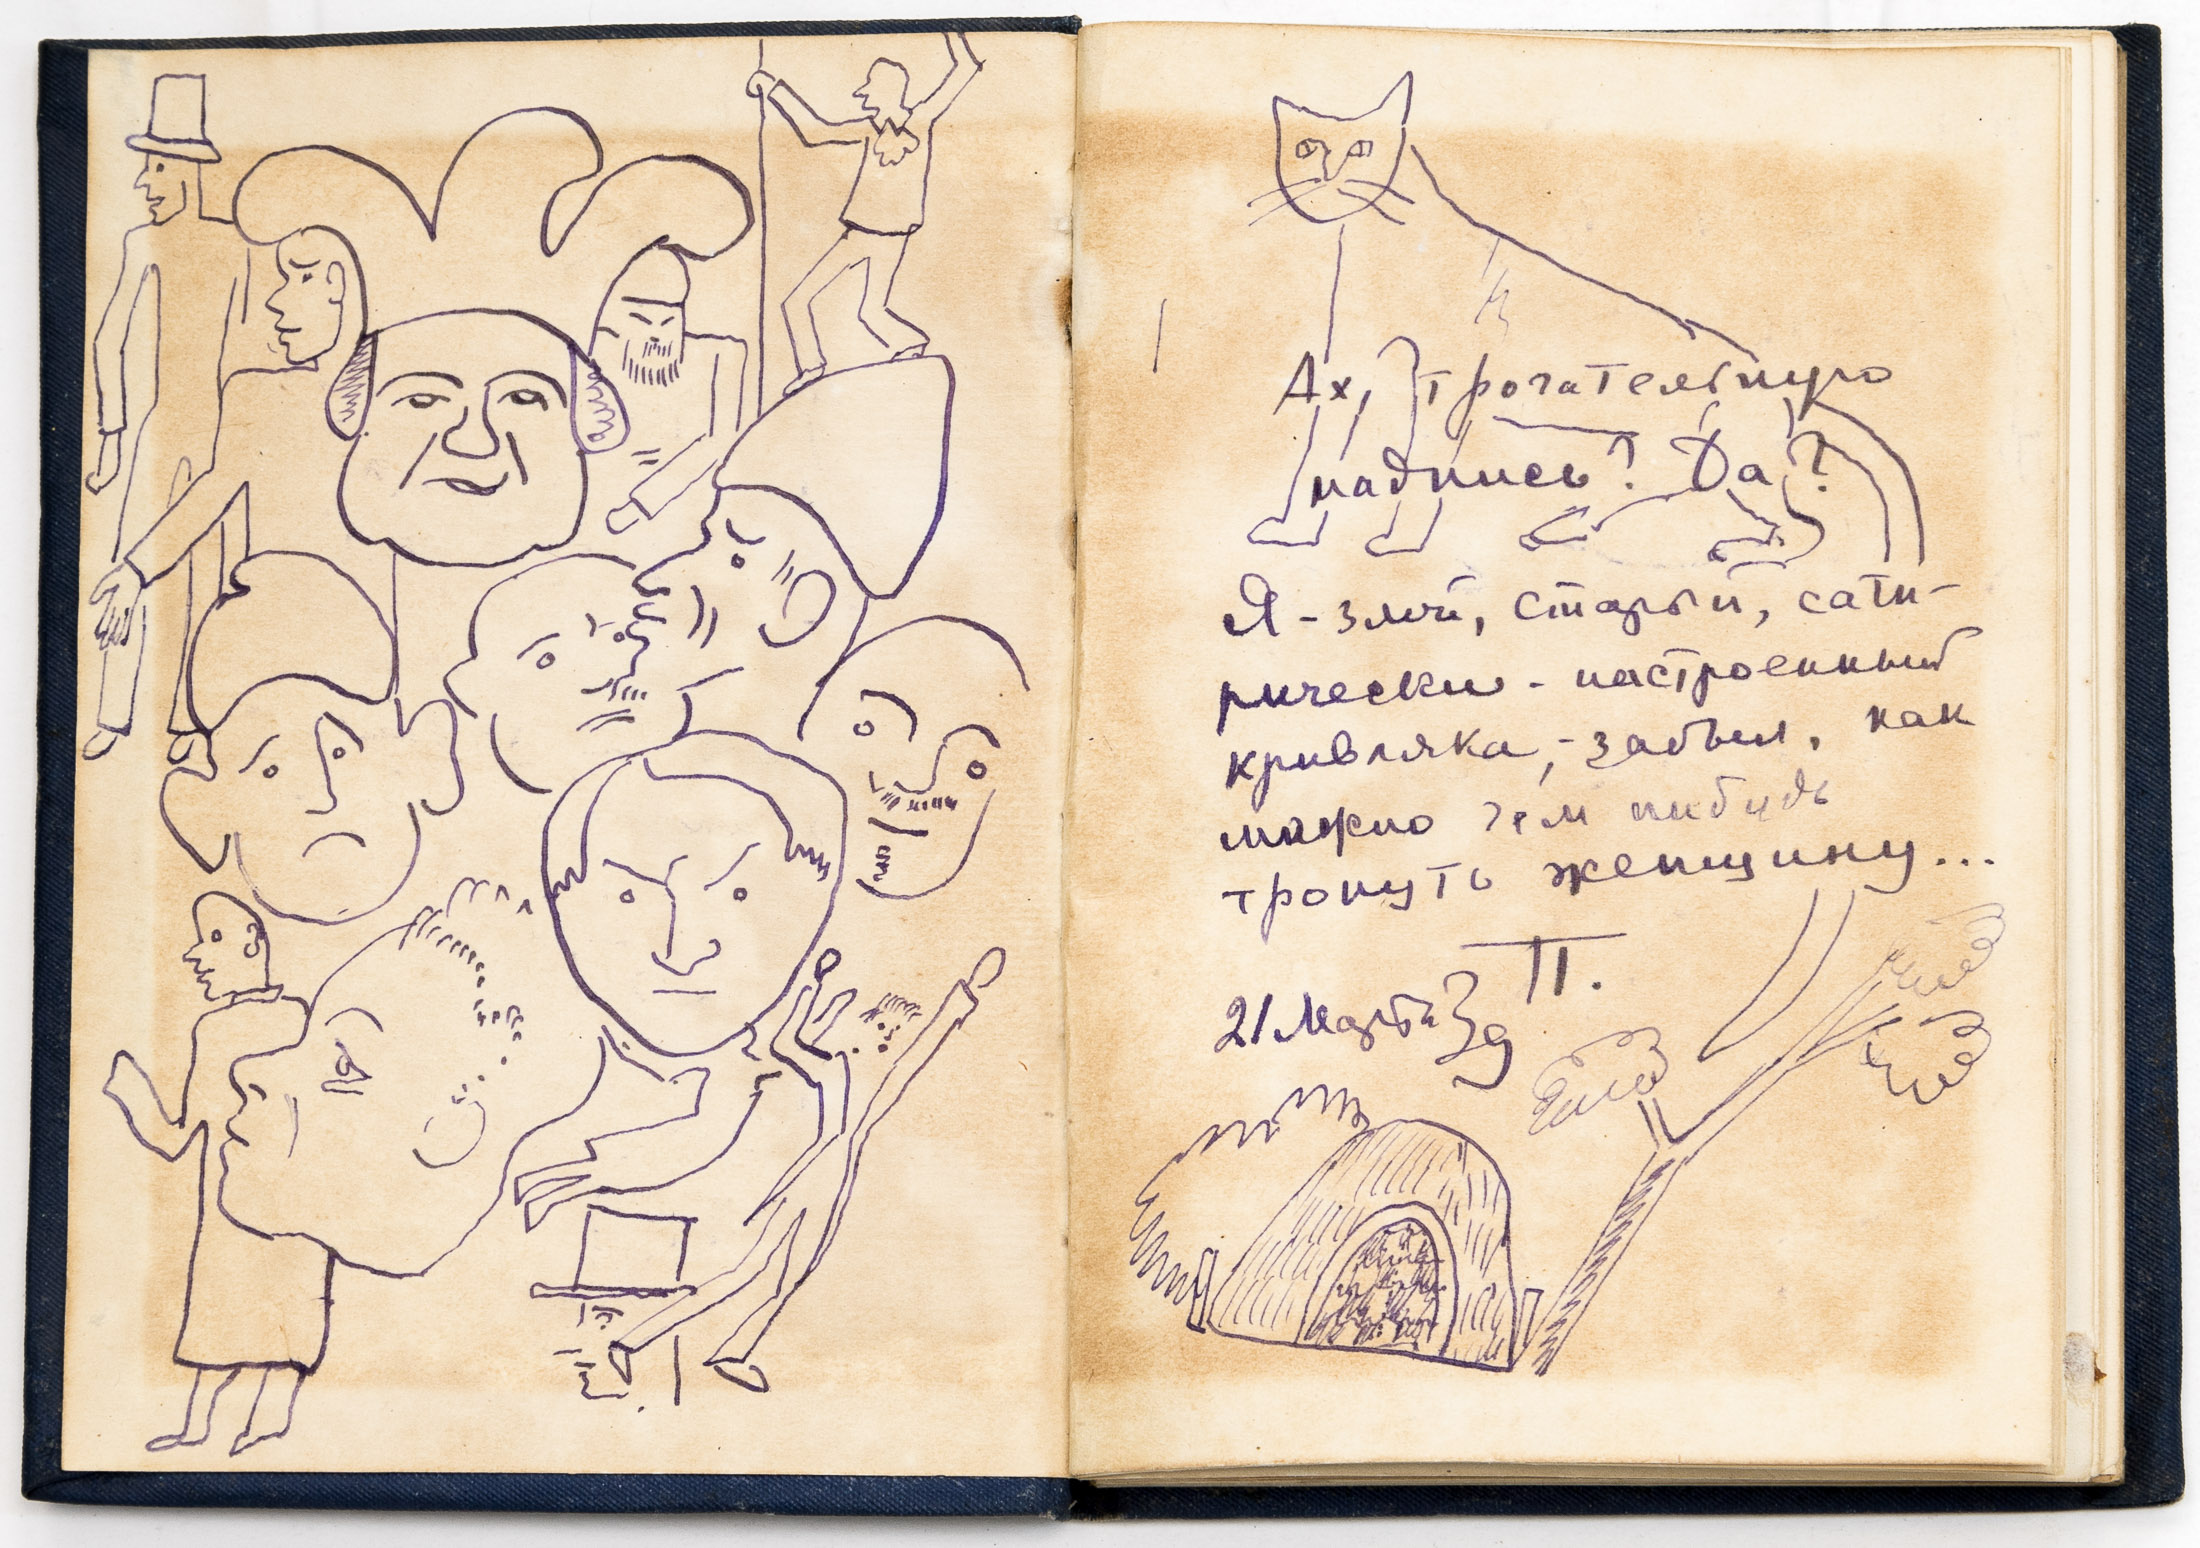 Ах, трогательную
надпись? Да?
Я - злой, старый, сати-
рически - настроенный
кривляка, - забыл, как
можно чем нибудь
тронуть женщину...
П.
21 Марта 39